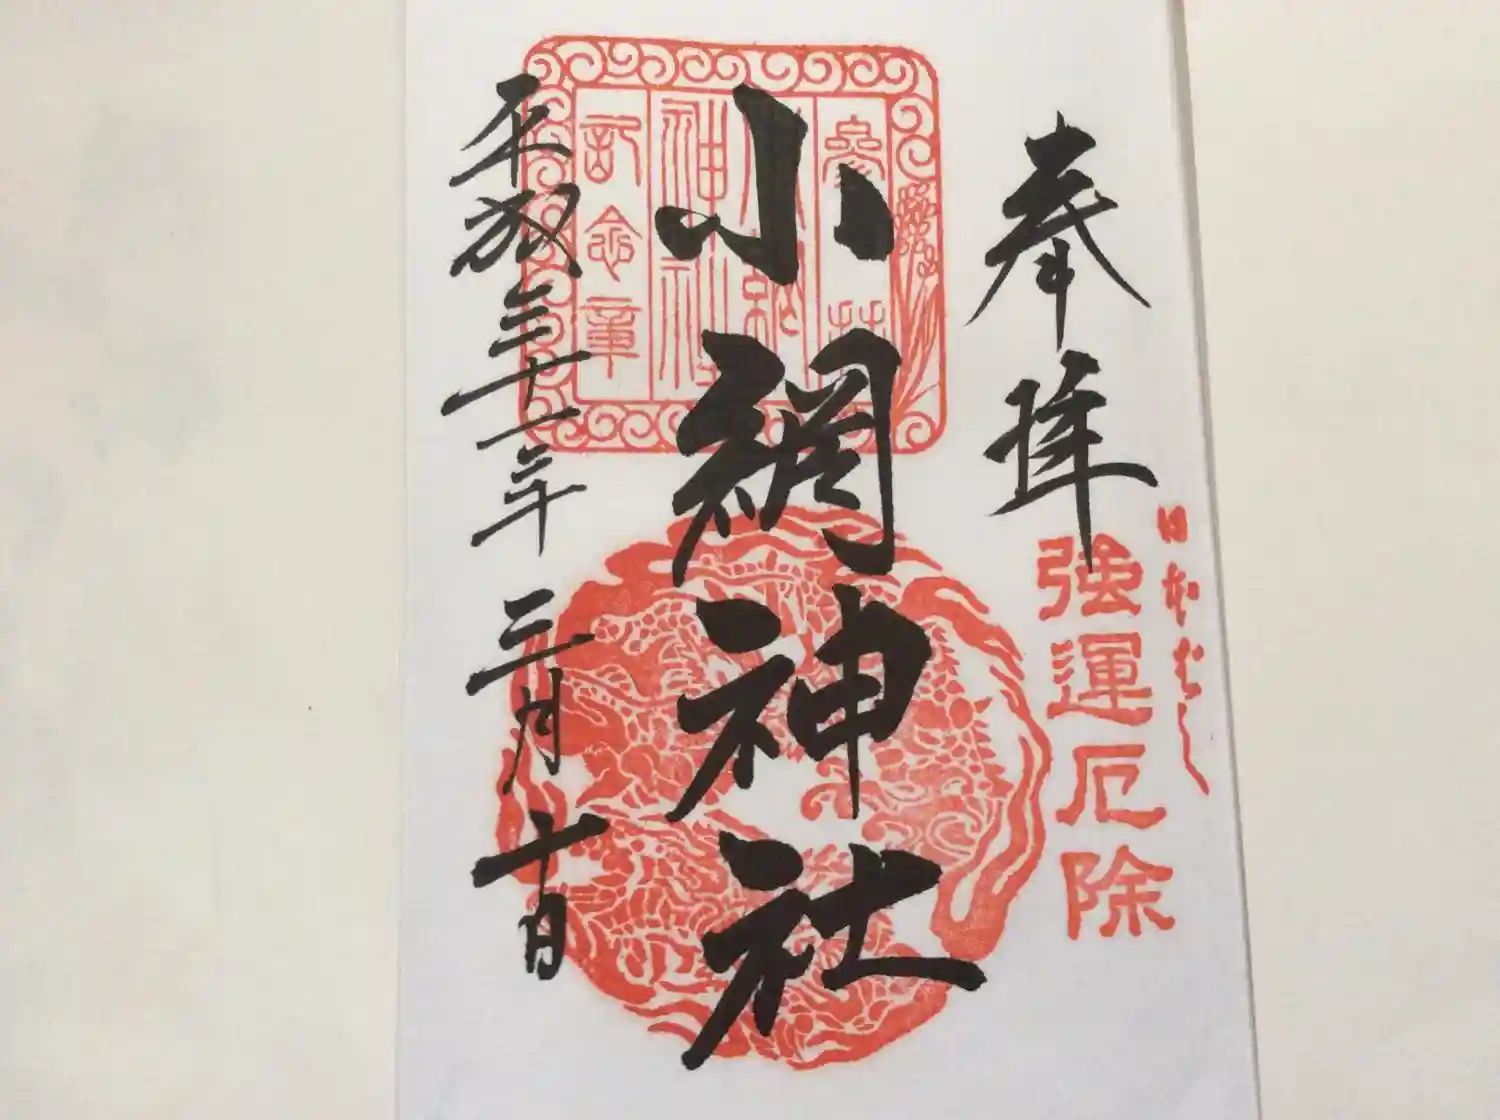 奉拜
日本ばし
強運厄除
小網神社
參拝
小網
神社
記念章
平成三十一年三月十日